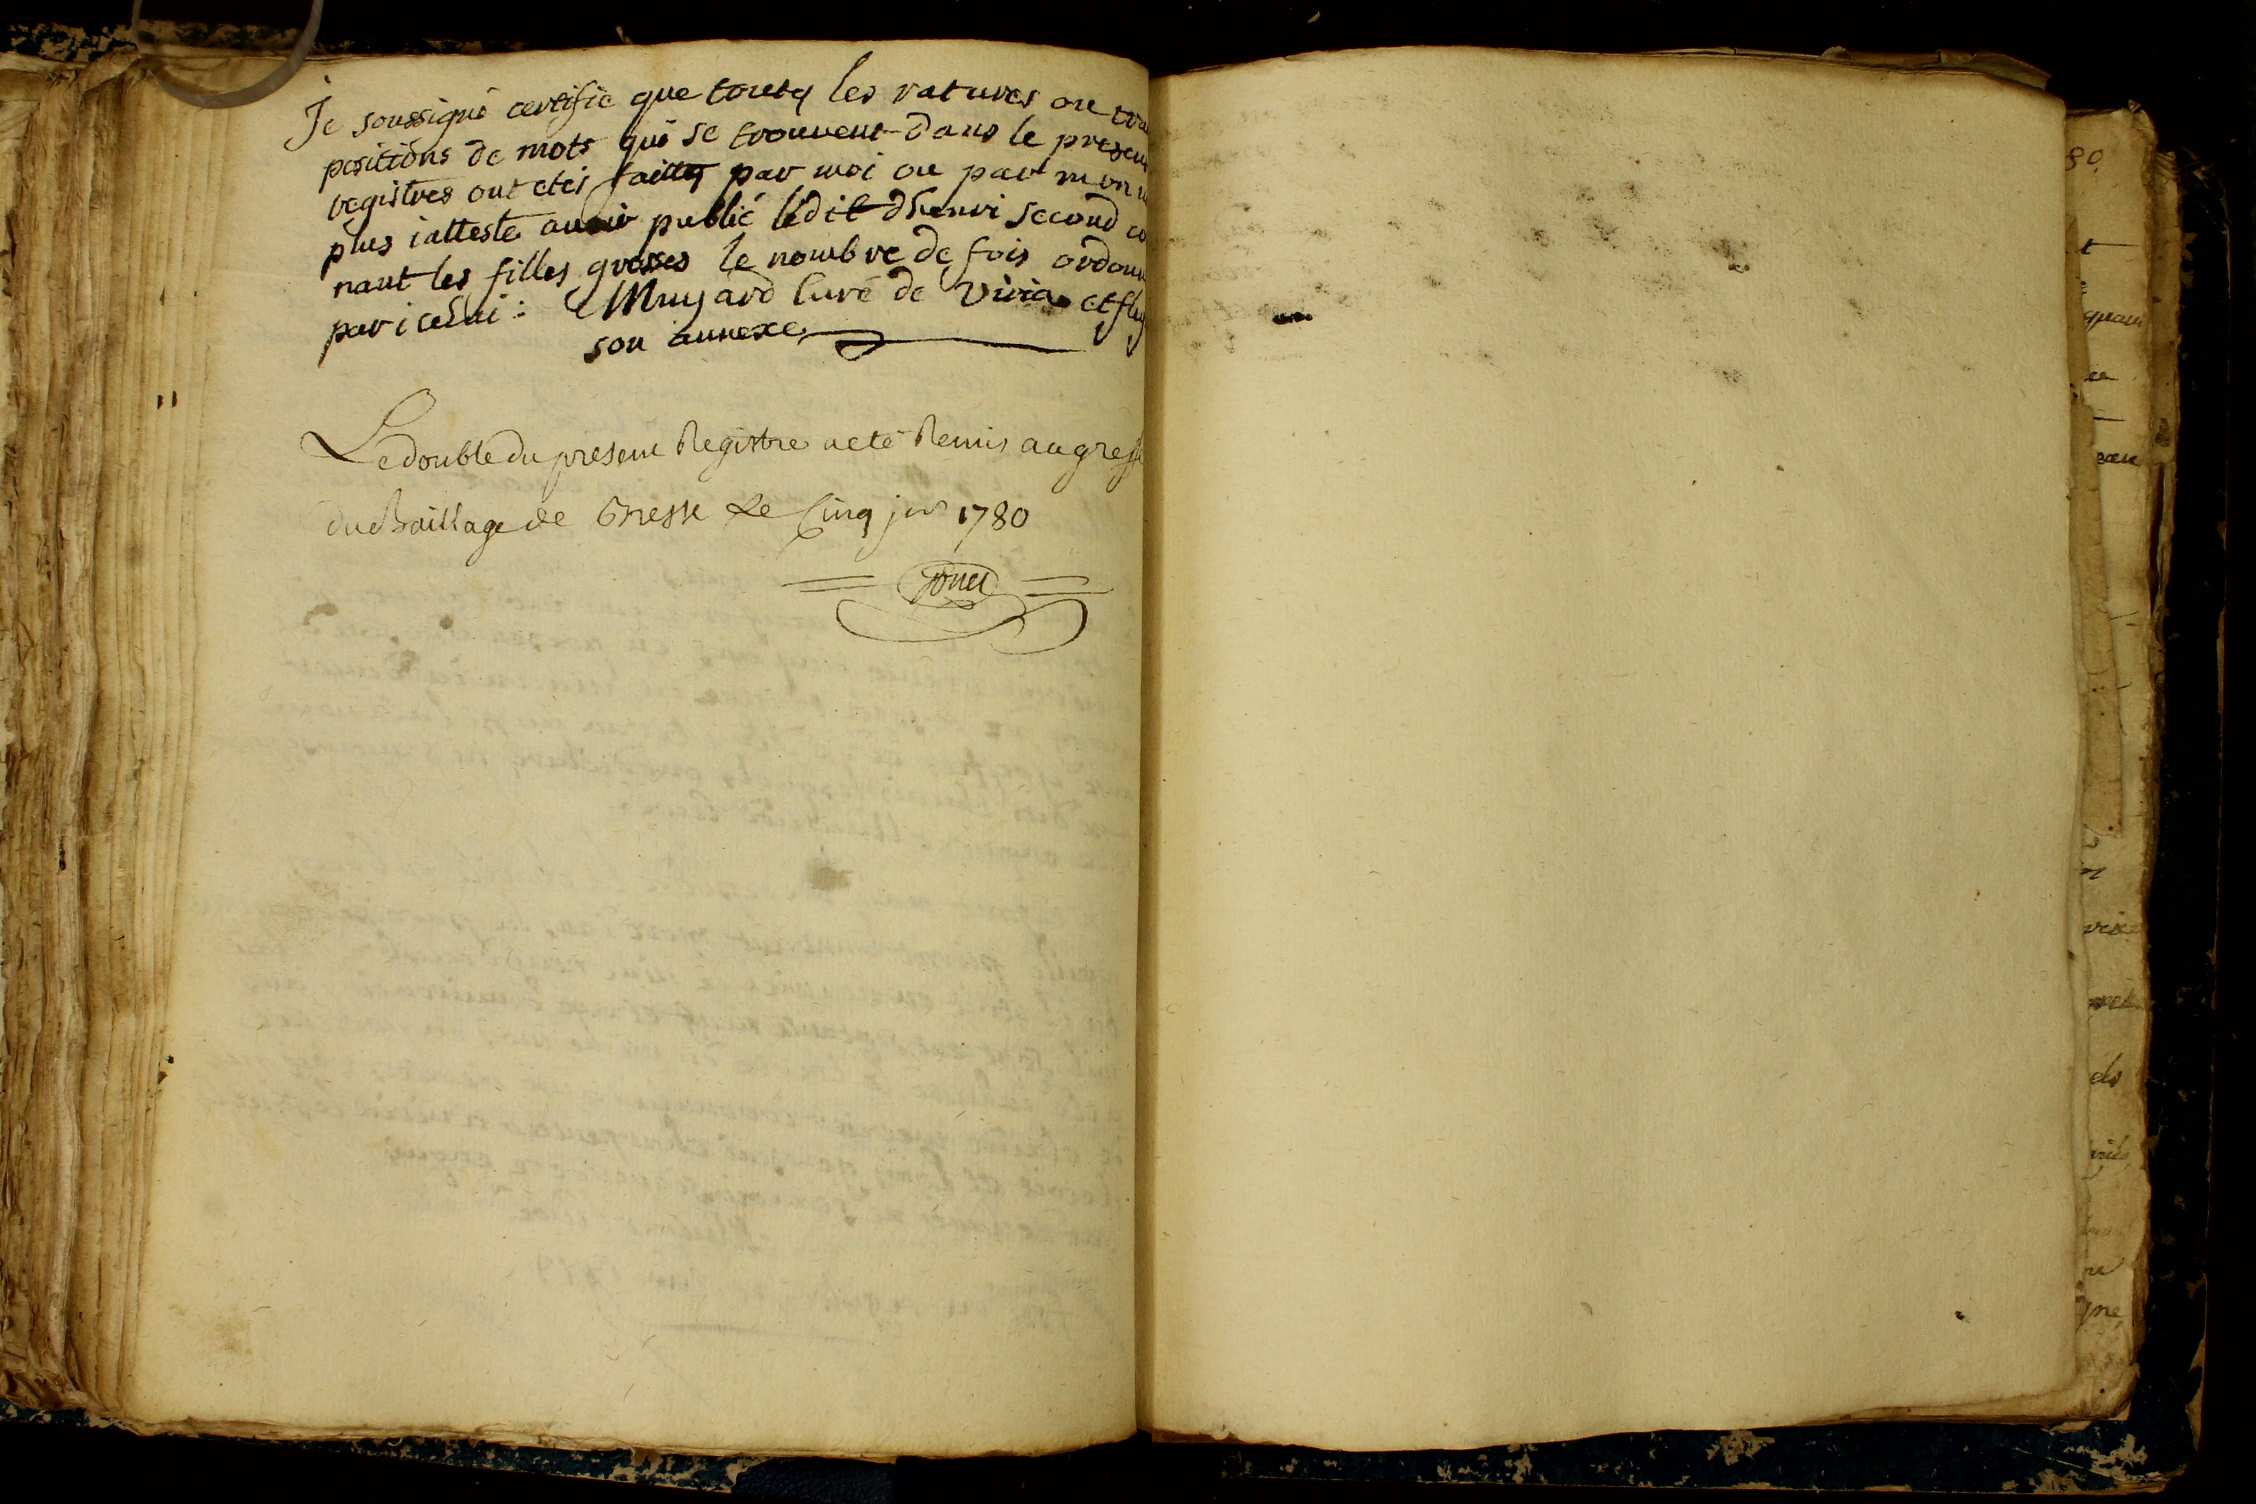 Je soussigné certifie que toutes les ratures ou
positions de mots qui se trouvent dans le present
registres ont etés faittes par moi ou par mon
plus i'atteste avoir publié lédit dhenri second co
nant les filles grosses le nombre de fois ordonn
par icelui : Mugard Curé de Viria et
son annexe
Le double du present Registre a eté Remis au greff
du Baillage de Bresse Le Cinq jer 1780
80